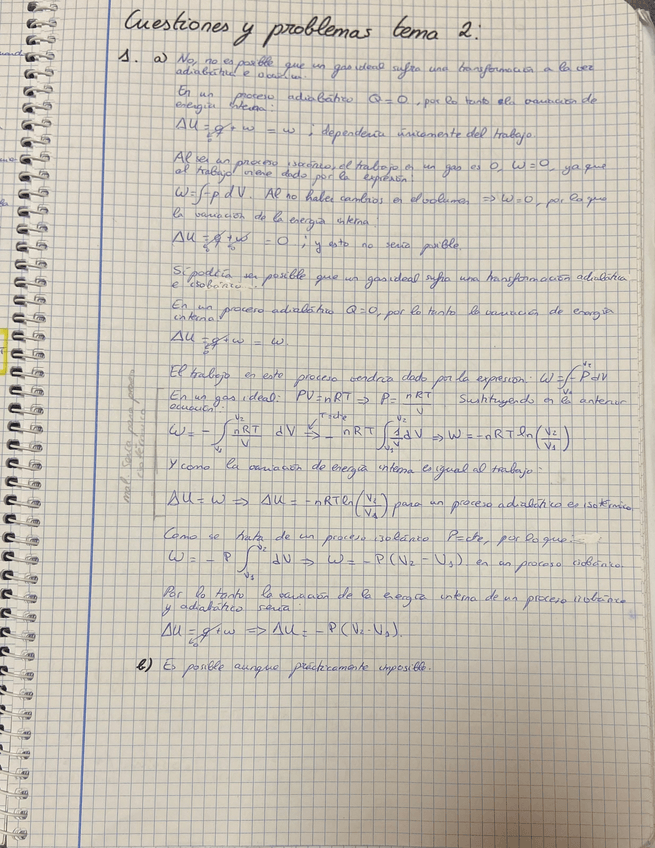 Cuestiones y problemas tema 2:
1. a) No, no es posible que un gas ideal sufra una transformación a la vez
adiabática e
En un proceso adiabático Q=0, por lo tanto la variación de
energía interna:
ΔU = q + w = w ; dependería únicamente del trabajo.
0
Al ser un proceso isocórico, el trabajo en un gas es 0, W=0, ya que
el trabajo viene dado por la expresión:
W=∫-p dV. Al no haber cambios en el volumen ⇒ W=0, por lo que
la variación de la energía interna.
ΔU = q + w = 0 ; y esto no sería posible.
0 0
Sí podría ser posible que un gas ideal sufra una transformación adiabática
e isobárica.
En un proceso adiabático Q=0, por lo tanto la variación de energía
interna:
ΔU = q + w = w.
0
El trabajo en este proceso vendría dado por la expresión: W=∫-PdV
V₂
V₁
En un gas ideal: PV=nRT ⇒ P= nRT/V Sustituyendo en la anterior
ecuación:
T=cte
W = -∫ nRT/V dV ⇒ - nRT ∫ 1/V dV ⇒ W=-nRT ln(V₂/V₁)
V₂ V₂
V₁ V₁
Y como la variación de energía interna es igual al trabajo:
ΔU = W ⇒ ΔU = -nRT ln(V₂/V₁) para un proceso adiabático e isotérmico
mal. Sería para proceso
Como se trata de un proceso isobárico P=cte, por lo que:
W = - P ∫ dV ⇒ W = -P(V₂ - V₁) en un proceso isobárico.
V₂
V₁
Por lo tanto la variación de la energía interna de un proceso isobárico
y adiabático sería:
ΔU = q + w ⇒ ΔU = -P(V₂-V₁).
0
b) Es posible aunque prácticamente imposible.